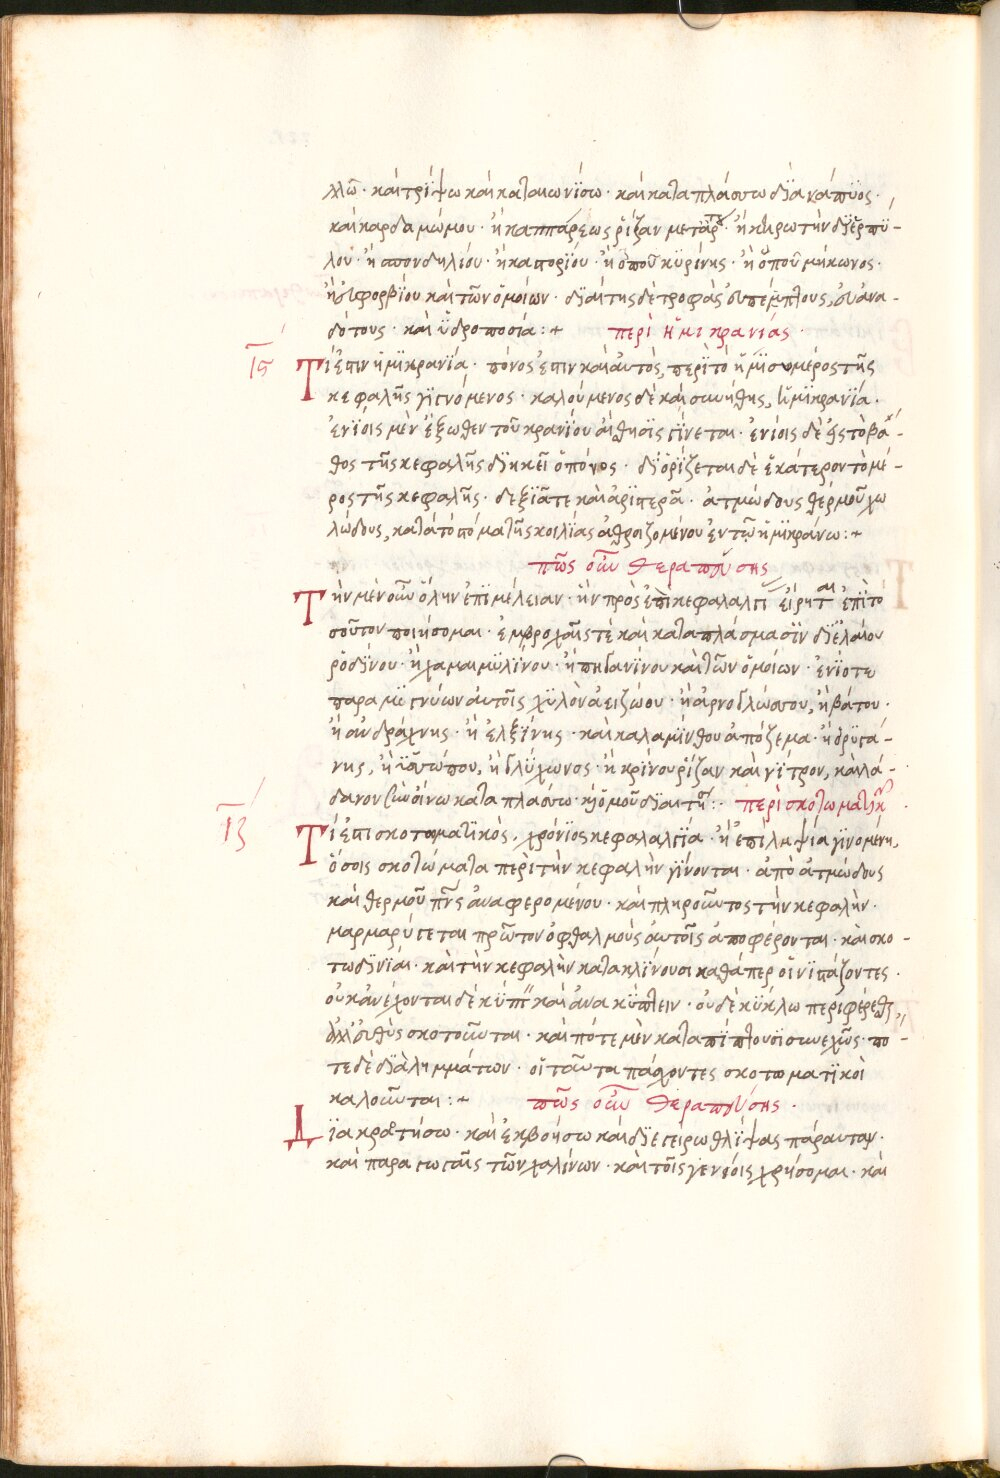 λλῶ · καὶ τρίψω καὶ καταιωνίσω · καὶ καταπλάσσω διὰ νάπυος ·
καὶ καρδαμώμου · ἢ καππάρεως ῥίζαν μετὰ · ἢ κηρωτὴν δι' ἑρπύ-
λου · ἢ σπονδηλίου · ἢ καστορίου · ἢ ὀποῦ κυρίνης · ἢ ὀποῦ μήκωνος ·
ἢ εὐφορβίου καὶ τῶν ὁμοίων · διαίτης δὲ τροφὰς εὐπέπτους, εὐανα-
δότους · καὶ ὑδροποσία :+ περὶ ἡμικρανίας ·
ις Τί ἐστιν ἡμικρανία · πόνος ἐστιν καὶ αὐτὸς, περὶ τὸ ἥμισυ μέρος τῆς
κεφαλῆς γιγνόμενος · καλούμενος δὲ καὶ συνήθης, ἡμικρανία ·
ἐνίοις μὲν ἔξωθεν τοῦ κρανίου αἴσθησις γίνεται · ἐνίοις δὲ εἰς τὸ βά-
θος τῆς κεφαλῆς διηκεῖ ὁ πόνος · διορίζεται δὲ ἑκάτερον τὸ μέ-
ρος τῆς κεφαλῆς · δεξιᾶ τε καὶ ἀριστερᾶ · ἀτμώδους θερμοῦ χω
λώδους, κατὰ τὸ στόμα τῆς κοιλίας ἀθροιζομένου ἐν τῷ ἡμικράνω :+
πῶς οὖν θεραπεύσης
Τὴν μὲν οὖν ὅλην ἐπιμέλειαν · ἣν πρὸς ἐπὶ κεφαλαλγι εἴρηται ἐπὶ τὸ
σοῦτον ποιήσομαι · ἐμβροχαῖς τὲ καὶ καταπλάσμασιν δι' ἐλαίου
ῥοδίνου · ἢ χαμαιμυλίνου · ἢ πηγανίνου καὶ τῶν ὁμοίων · ἐνίοτε
παραμιγνύων αὐτοῖς χυλὸν ἀειζώου · ἢ ἀρνογλώσσου, ἢ βάτου ·
ἢ ἀνδράχνης · ἢ ἐλξίνης · καὶ καλαμίνθου ἀπόζεμα · ἢ ὀριγά-
νης, ἢ ὑσσώπου, ἢ γλύχωνος · ἢ κρίνου ῥίζαν καὶ νίτρον, καὶ λά-
δανον σὺν οἴνω καταπλάσσω · καὶ ὁμοῦ διαιτη :· περὶ σκοτωματικ
ιζ Τί ἐστι σκοτοματικὸς, χρόνιος κεφαλαλγία · ἢ ἐπιληψία γινομένη,
ὅσοις σκοτώματα περὶ τὴν κεφαλὴν γίνονται · ἀπὸ ἀτμώδους
καὶ θερμοῦ πνς ἀναφερομένου · καὶ πληροῦντος τὴν κεφαλὴν ·
μαρμαρύγεται πρῶτον ὀφθαλμοὺς αὐτοῖς ἀποφέρονται · καὶ σκο-
τωδινίαι · καὶ τὴν κεφαλὴν κατακλίνουσι καθάπερ οἱ νυστάζοντες ·
οὐκ ἀνέχονται δὲ κύπτ καὶ ἀνακύπτειν · οὐδὲ κύκλω περιφέρεσθ,
ἀλλ' εὐθὺς σκοτοῦνται · καὶ πότε μὲν καταπίπτουσι συνεχῶς · πο-
τε δὲ διαλημμάτων · οἱ ταῦτα πάσχοντες σκοτοματικοὶ
καλοῦνται :+ πῶς οὖν θεραπεύσης ·
Διακρατήσω · καὶ ἐκβοήσω καὶ διεγείρω θλίψας πάραυταν ·
καὶ παραγωγαῖς τῶν χαλίνων · καὶ τοῖς γενείοις χρήσομαι · καὶ